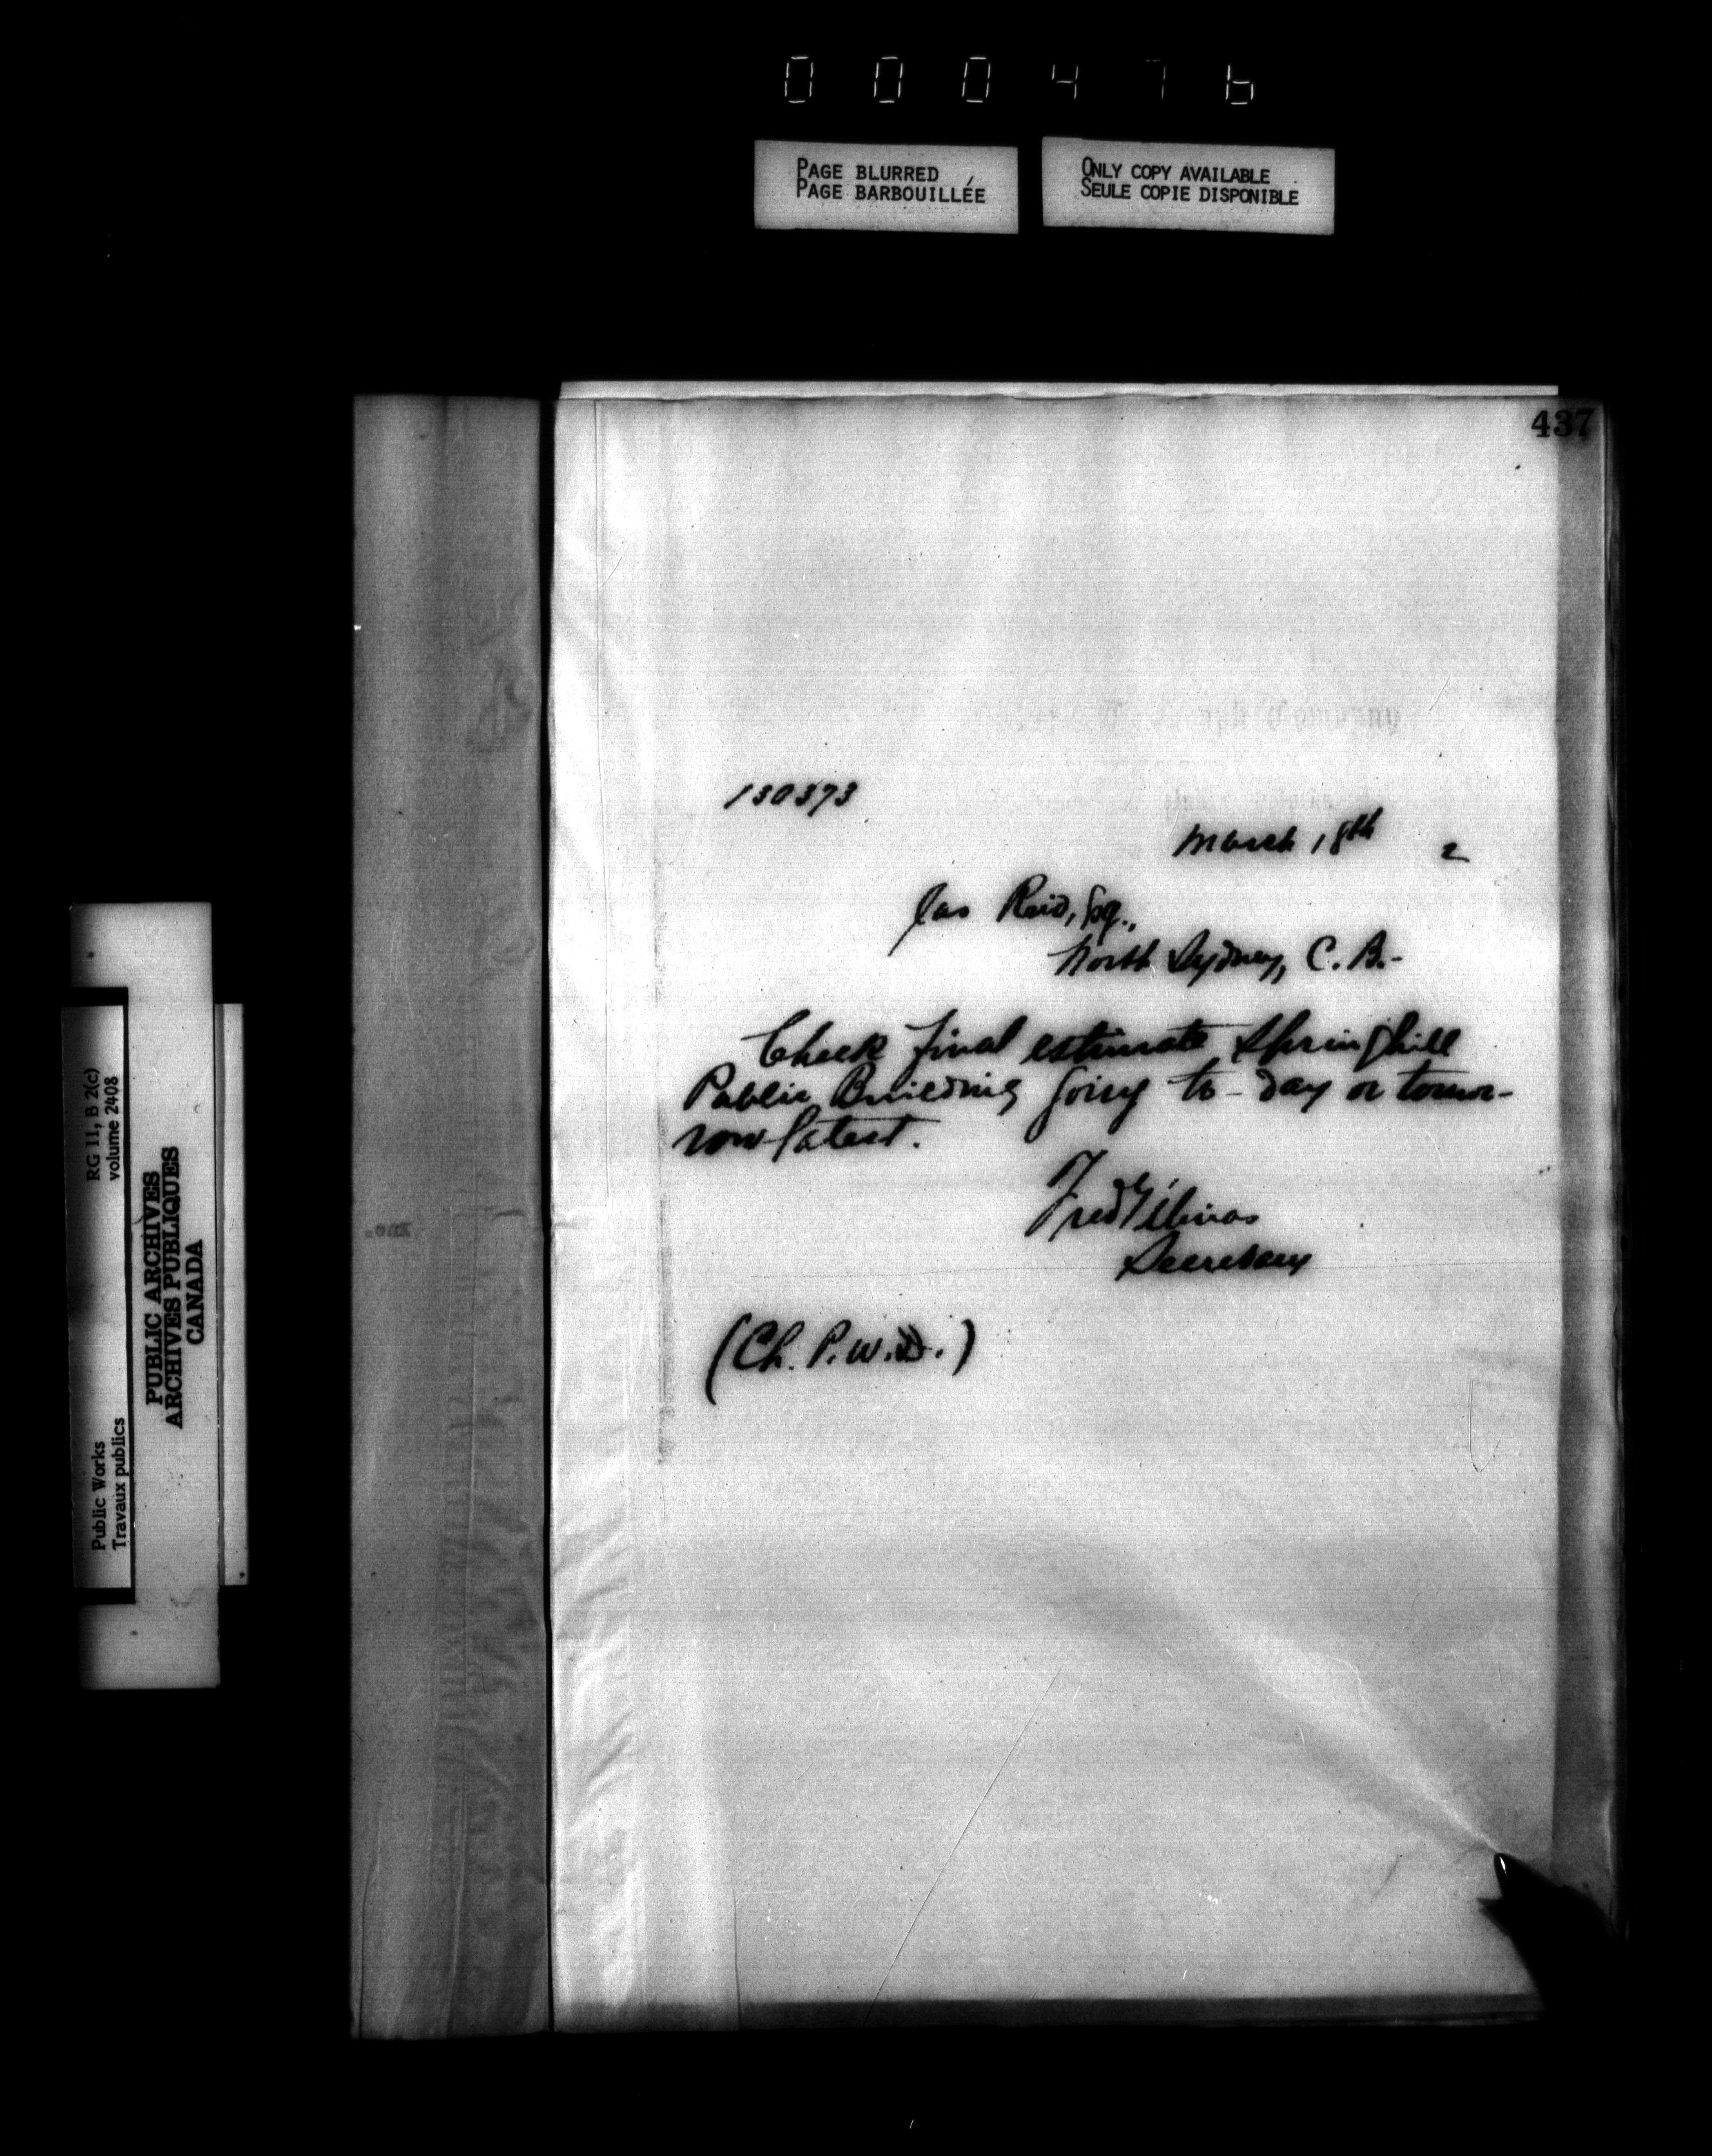 000476
PAGE BLURRED
PAGE BARBOUILLÉE
ONLY COPY AVAILABLE
SEULE COPIE DISPONIBLE
437
Company
130373
March 18th 2
Jas Reid, Esq.,
North Sydney, C. B.-
Check final estimate Springhill
Public Building going to-day or tomor-
row latest.
Fred Gélinas
Secretary
(Ch. P.W.D.)
RG 11, B 2(c)
volume 2408
Public Works
Travaux publics
PUBLIC ARCHIVES
ARCHIVES PUBLIQUES
CANADA